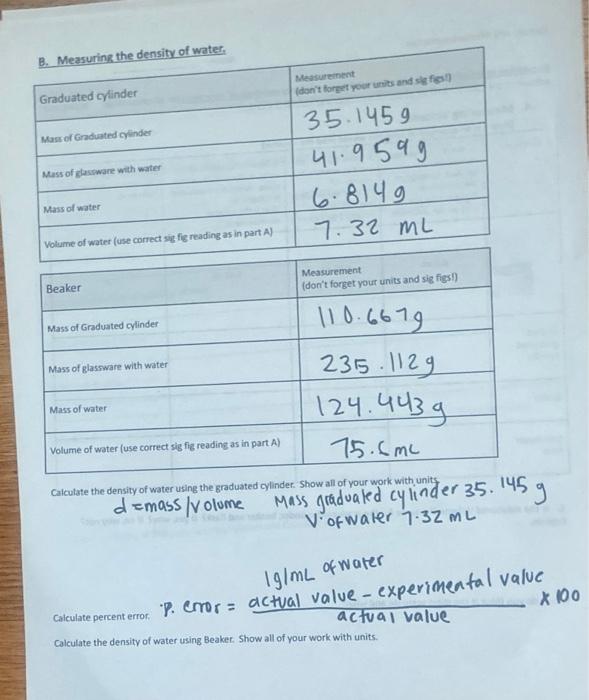 B. Measuring the density of water.
Graduated cylinder
Measurement
(don't forget your units and sig figs!)
Mass of Graduated cylinder
35.145g
Mass of glassware with water
41.959g
Mass of water
6.814g
Volume of water (use correct sig fig reading as in part A)
7.32 mL
Beaker
Measurement
(don't forget your units and sig figs!)
Mass of Graduated cylinder
110.667g
Mass of glassware with water
235.112g
Mass of water
124.443g
Volume of water (use correct sig fig reading as in part A)
mL
Calculate the density of water using the graduated cylinder. Show all of your work with units
d = mass/volume Mass graduated cylinder 35.145 g
V. of water 7.32 mL
1g/mL of water
Calculate percent error. P. error = actual value - experimental value x 100
actual value
Calculate the density of water using Beaker. Show all of your work with units.